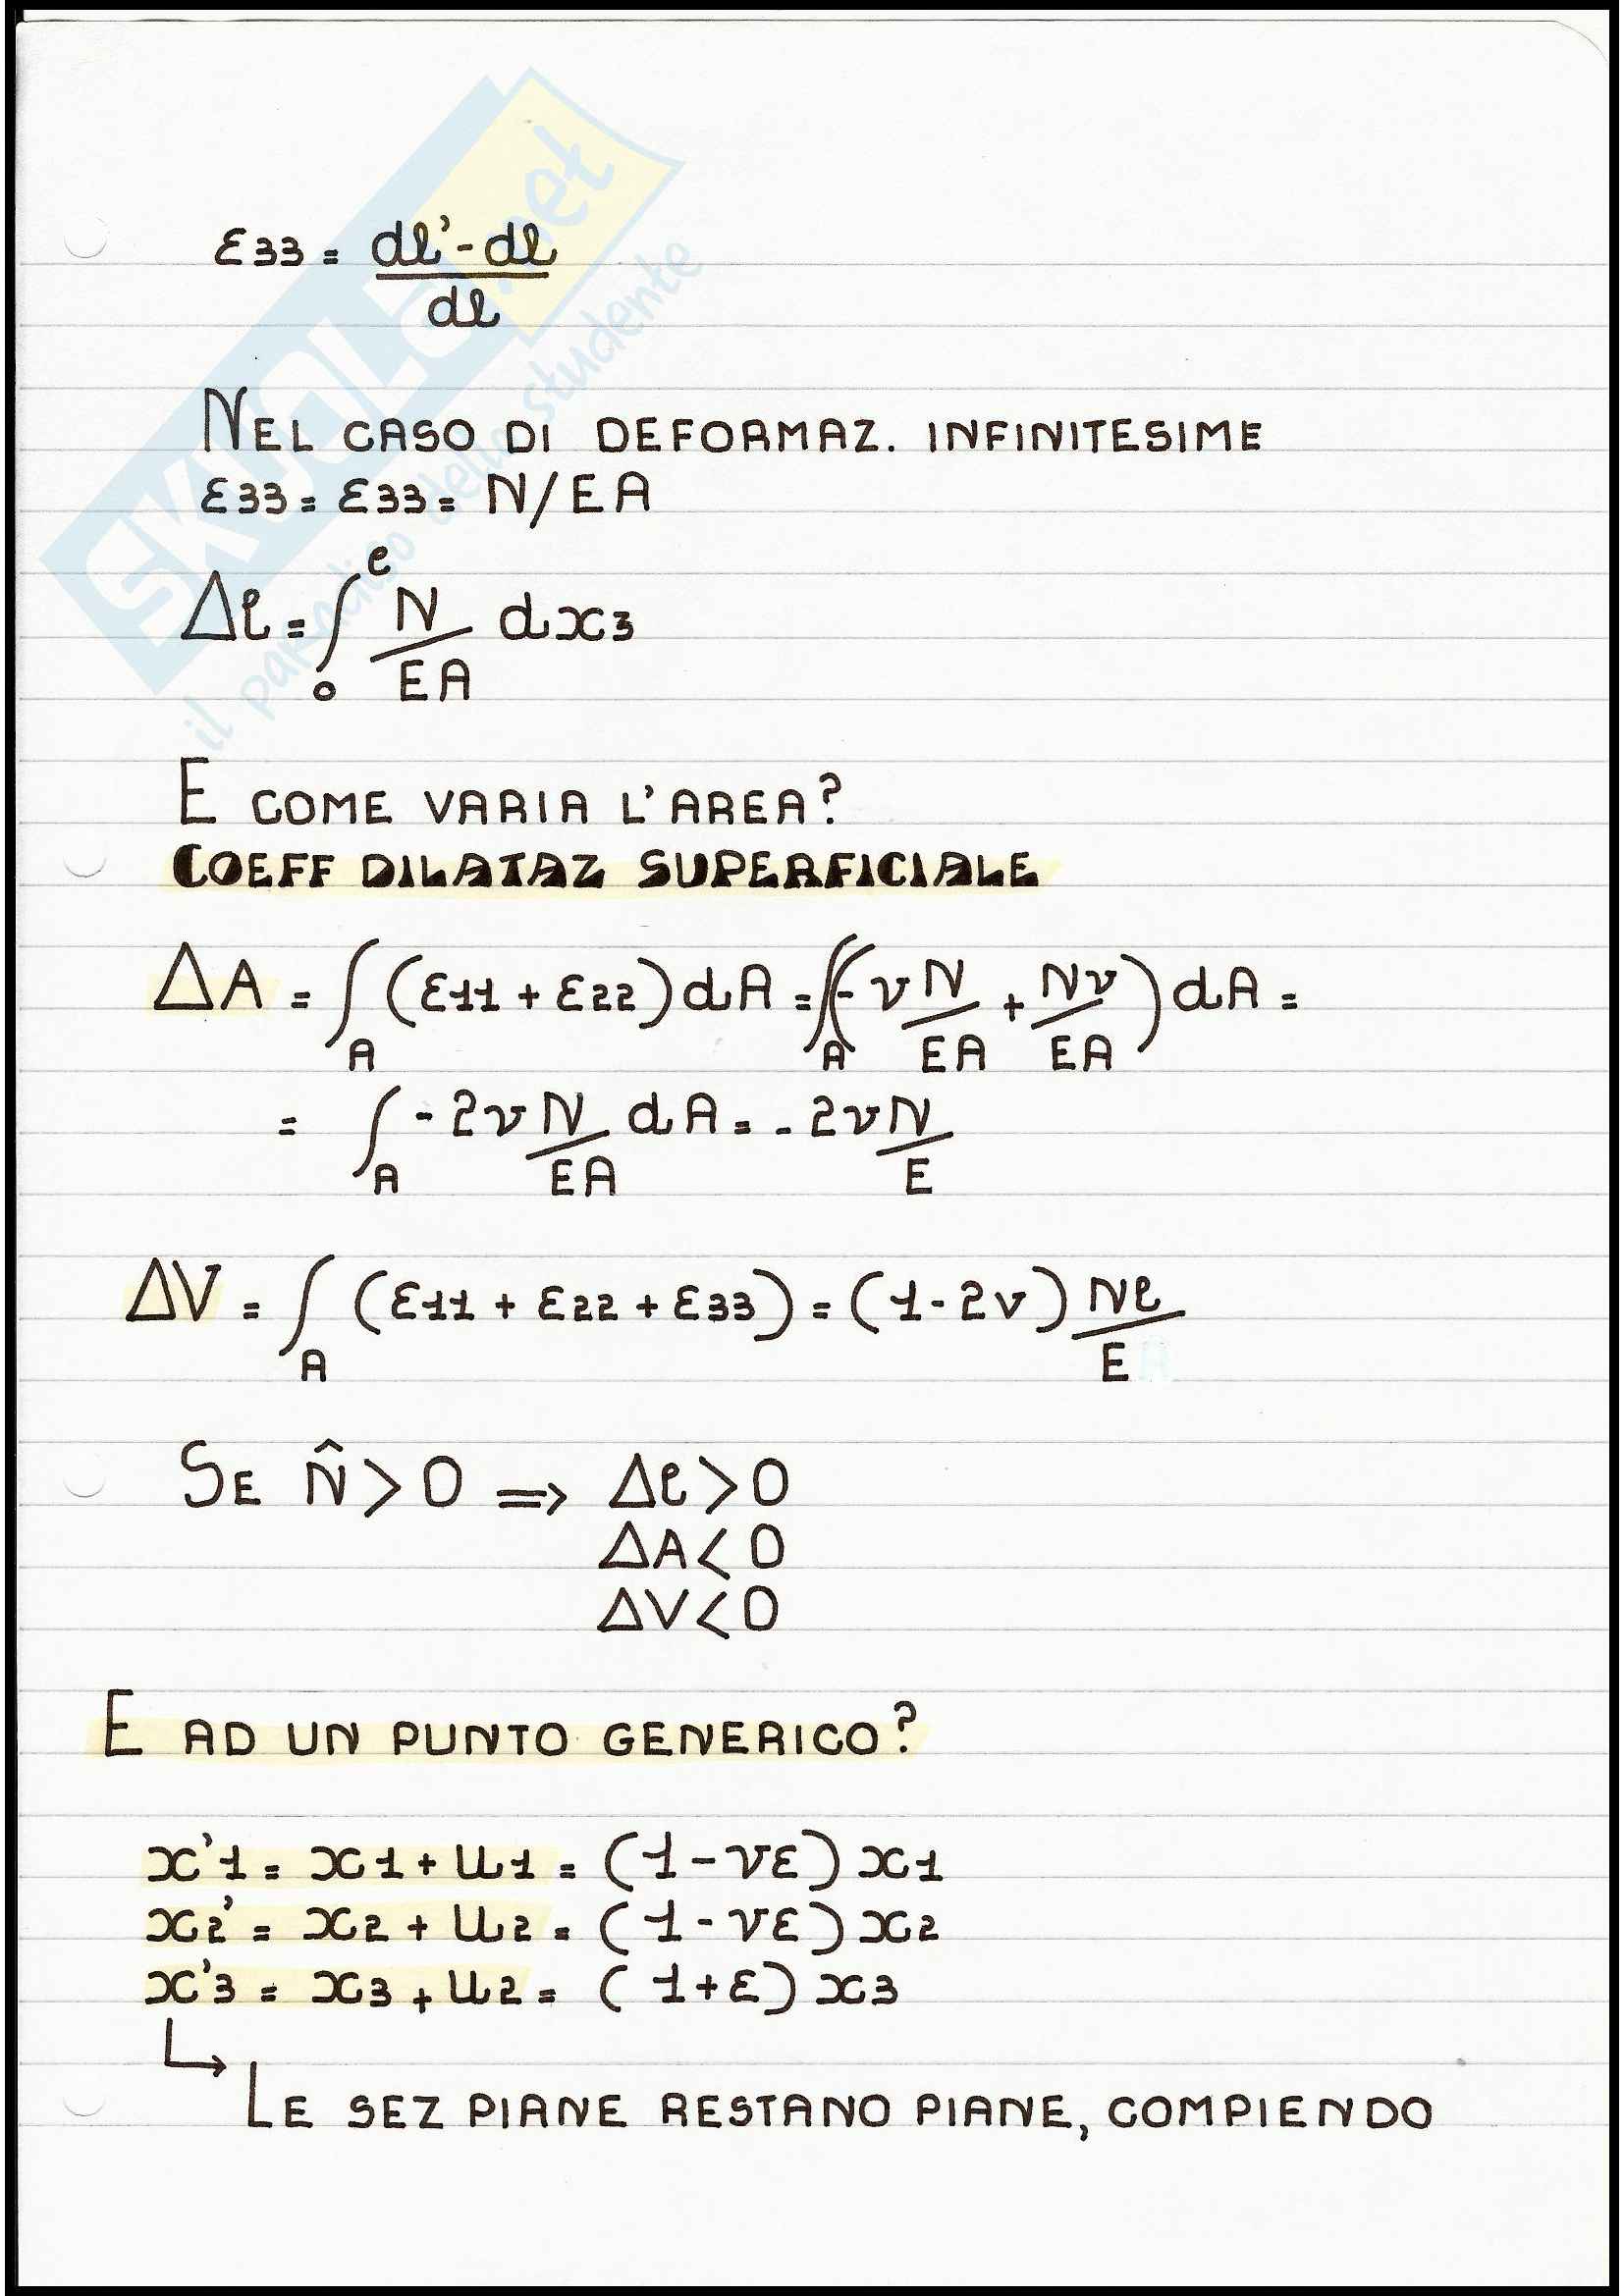 SKUOLA.net
il paradiso dello studente
ε33 = dl'-dl
dl
NEL CASO DI DEFORMAZ. INFINITESIME
ε33 = ε33 = N/EA
Δl = ∫₀ˡ N/EA dx3
E COME VARIA L'AREA?
COEFF DILATAZ SUPERFICIALE
ΔA = ∫_A (ε11 + ε22) dA = ∫_A (-ν N/EA + Nν/EA) dA =
= ∫_A -2ν N/EA dA = -2ν N/E
ΔV = ∫_A (ε11 + ε22 + ε33) = (1-2ν) Nl/E
SE N̂ > 0 ⇒ Δl > 0
ΔA < 0
ΔV < 0
E AD UN PUNTO GENERICO?
x'1 = x1 + u1 = (1-νε) x1
x2' = x2 + u2 = (1-νε) x2
x'3 = x3 + u2 = (1+ε) x3
↳ LE SEZ PIANE RESTANO PIANE, COMPIENDO